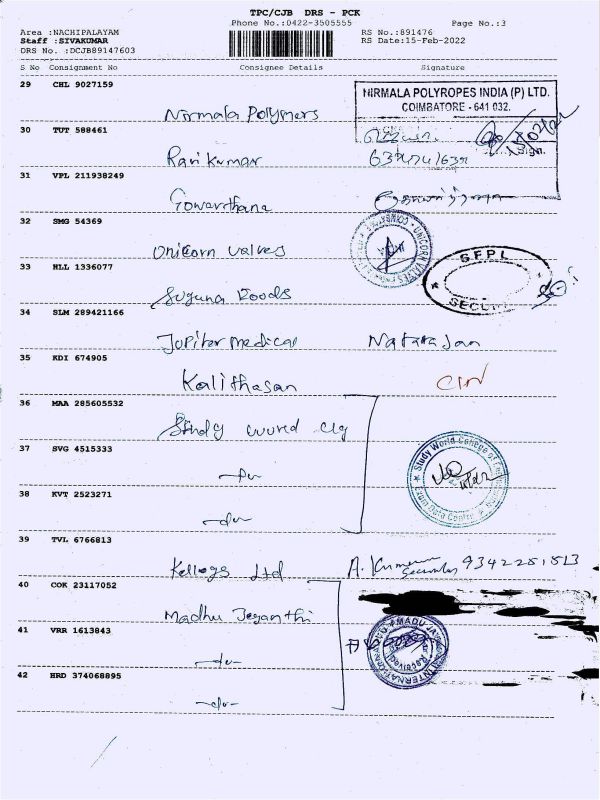 TPC/CJB DRS - PCK
Phone No.:0422-3505555
Page No.:3
Area :NACHIPALAYAM
RS No.:891476
Staff :SIVAKUMAR
RS Date:15-Feb-2022
DRS No. :DCJB89147603
S No Consignment No Consignee Details Signature
29 CHL 9027159
Nirmala Polymers
NIRMALA POLYROPES INDIA (P) LTD.
COIMBATORE - 641 032.
30 TUT 588461
Ravikumar
Sign.
31 VPL 211938249
Gowarthana
32 SMG 54369
Unicorn valves
UNICORN VALVES
33 HLL 1336077
Suguna Foods
SFPL
SECURITY
34 SLM 289421166
Jupiter medical Natarajan
35 KDI 674905
Kalithasan
36 MAA 285605532
Study world clg
37 SVG 4515333
-do-
Study World College of
38 KVT 2523271
-do-
39 TVL 6766813
Kellogs Ltd A. Kumar
Security 9342281813
40 COK 23117052
Madhu Jeyanthi
41 VRR 1613843
-do-
INTERNATIONAL
Received
42 HRD 374068895
-do-